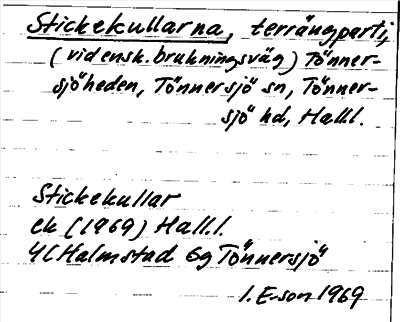 Stickekullarna, terrängparti,
(vid ensk. brukningsväg) Tönner-
sjöheden, Tönnersjö sn, Tönner-
sjö hd, Hall.
Stickekullar
ek (1969) Hall.
4C Halmstad 6g Tönnersjö
I. E-son 1969